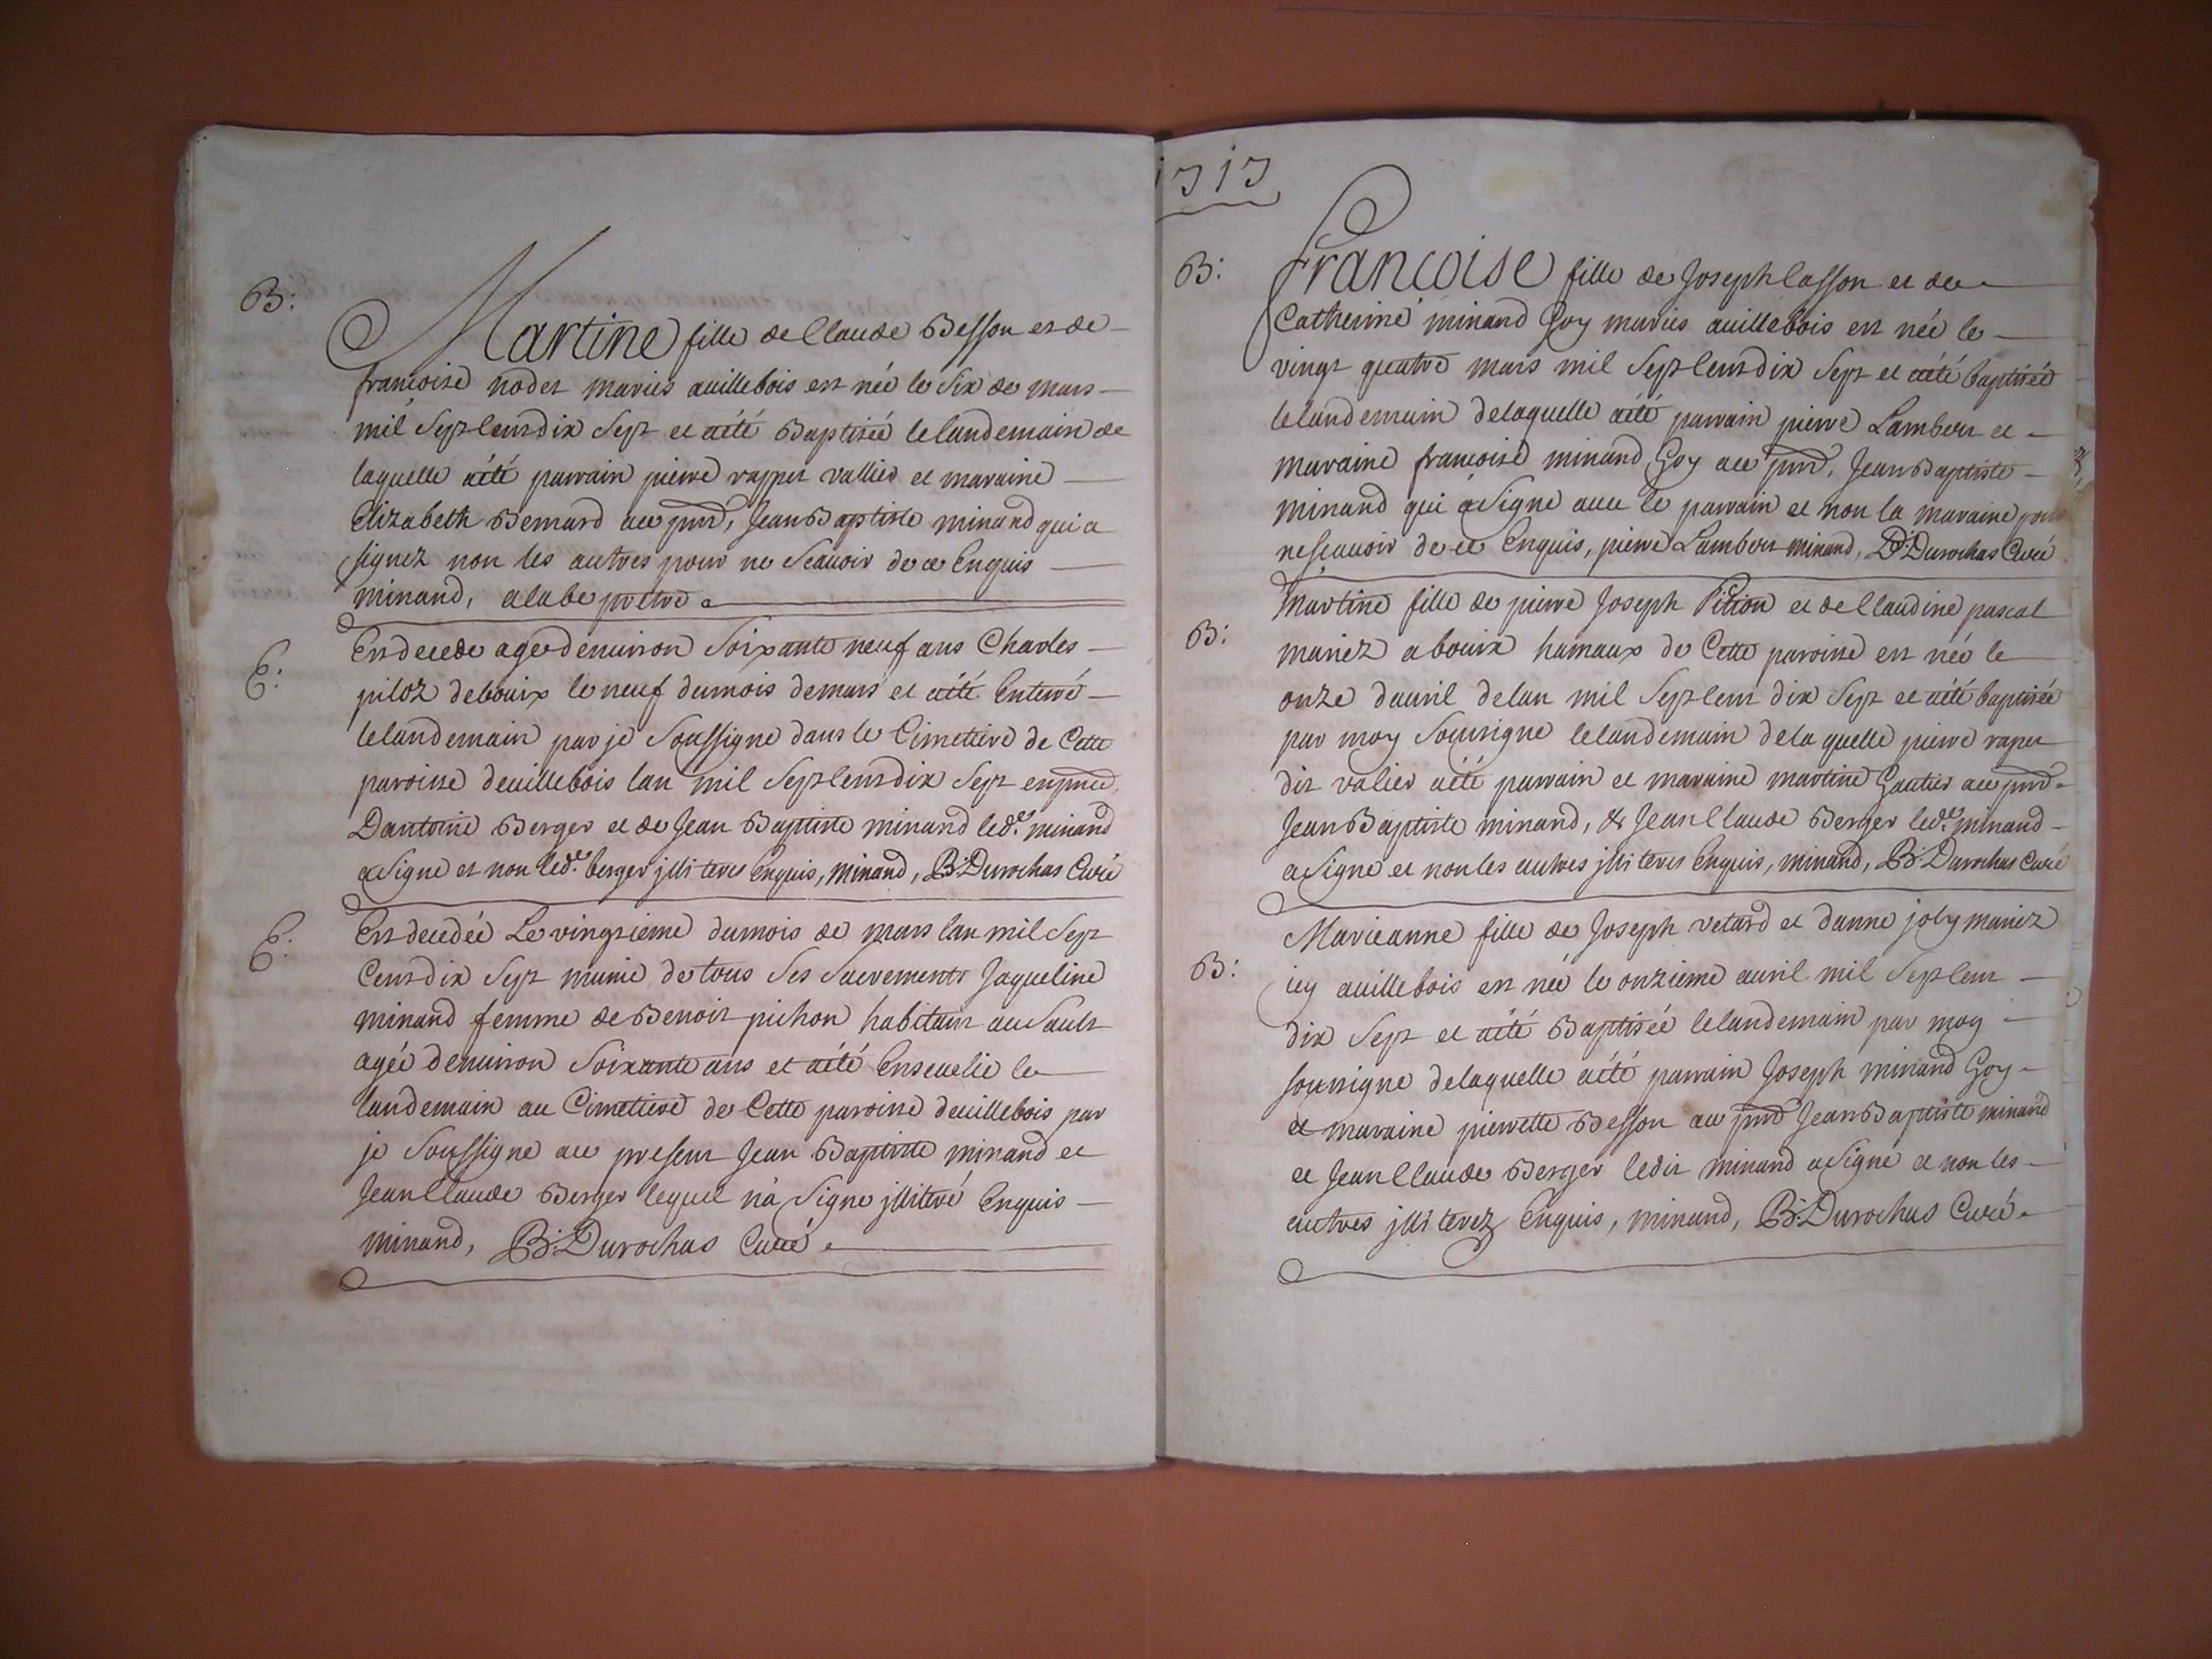 B:
Martine fille de Claude Besson et de
francoise nodet mariés auillebois est née le six de mars
mil Sept Cent dix Sept et aété Baptisée le landemain de
laquelle aété parrain pierre rappet vallier et maraine
Elizabeth Bernard aue pnt, Jean Baptiste minand qui a
signez non les autres pour ne Scauoir de ce Enquis
minand, alabe pretre
E:
Est decede age denuiron Soixante neuf ans Charles
piloz debouix le neuf dumois demars et aété Enterré
lelandemain par je Soussigne dans le Cimetiere de Cette
paroisse deuillebois lan mil Sept Cent dix Sept enpnce,
Dantoine Berger et de Jean Baptiste minand led.t minand
a Signe et non led.t berger jllitere Enquis, minand, B: Durochas Curé
E:
Est decedée Le vingtieme dumois de mars lan mil Sept
Cent dix Sept munie de tous Ses Sacrements Jaqueline
minand femme de Benoit pichon habitant au Sault
agée denuiron Soixante ans et aété Enseuelie le
landemain au Cimetiere de Cette paroisse deuillebois par
je Soussigne aue present Jean Baptiste minand et
Jean Claude Berger lequel n'a Signe jllitere Enquis
minand, B: Durochas Curé
1717
B:
Francoise fille de Joseph Casson et de
Catherine minand Goy mariés auillebois est née le
vingt quatre mars mil Sept Cent dix Sept et aété baptisée
lelandemain delaquelle aété parrain pierre Lambert et
maraine francoise minand Goy aue pnt, Jean Baptiste
minand qui a Signe auec le parrain et non la maraine pour
nescauoir de ce Enquis, pierre Lambert minand, B: Durochas Curé
B:
Martine fille de pierre Joseph Pition et de Claudine pascal
mariez a bouix hamaux de Cette paroisse est née le
onze dauril delan mil Sept Cent dix Sept et aété baptisée
par moy Sousigne lelandemain dela quelle pierre rapet
dit valier aété parrain et maraine martine Gautier aue pnt
Jean Baptiste minand, & Jean Claude Berger led.t minand
a Signe et non les autres jlliteres Enquis, minand, B: Durochas Curé
B:
Marieanne fille de Joseph vetard et danne joly mariez
icy auillebois est née le onzieme auril mil Sept Cent
dix Sept et aété Baptisée lelandemain par moy
sousigne delaquelle aété parrain Joseph minand Goy
et maraine pierrette Besson aue pnt Jean Baptiste minand
et Jean Claude Berger ledit minand a Signe et non les
autres jlliterez Enquis, minand, B: Durochas Curé